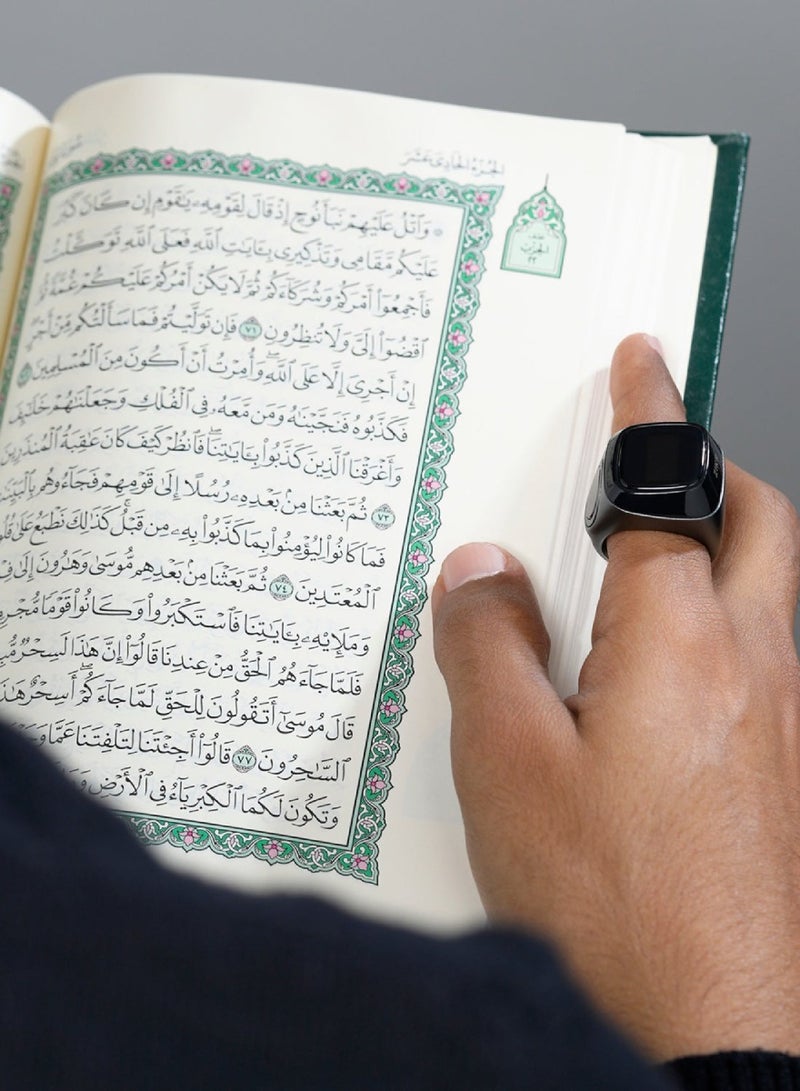 الجزء الحادى عشر
نصف
الحزب
٢٢
۞ وَٱتْلُ عَلَيْهِمْ نَبَأَ نُوحٍ إِذْ قَالَ لِقَوْمِهِۦ يَٰقَوْمِ إِن كَانَ كَبُرَ
عَلَيْكُم مَّقَامِى وَتَذْكِيرِى بِـَٔايَٰتِ ٱللَّهِ فَعَلَى ٱللَّهِ تَوَكَّلْتُ
فَأَجْمِعُوٓا۟ أَمْرَكُمْ وَشُرَكَآءَكُمْ ثُمَّ لَا يَكُنْ أَمْرُكُمْ عَلَيْكُمْ غُمَّةً ثُمَّ
ٱقْضُوٓا۟ إِلَىَّ وَلَا تُنظِرُونِ ٧١ فَإِن تَوَلَّيْتُمْ فَمَا سَأَلْتُكُم مِّنْ أَجْرٍ
إِنْ أَجْرِىَ إِلَّا عَلَى ٱللَّهِ وَأُمِرْتُ أَنْ أَكُونَ مِنَ ٱلْمُسْلِمِينَ
فَكَذَّبُوهُ فَنَجَّيْنَٰهُ وَمَن مَّعَهُۥ فِى ٱلْفُلْكِ وَجَعَلْنَٰهُمْ خَلَٰٓئِفَ
وَأَغْرَقْنَا ٱلَّذِينَ كَذَّبُوا۟ بِـَٔايَٰتِنَا فَٱنظُرْ كَيْفَ كَانَ عَٰقِبَةُ ٱلْمُنذَرِينَ
٧٣ ثُمَّ بَعَثْنَا مِنۢ بَعْدِهِۦ رُسُلًا إِلَىٰ قَوْمِهِمْ فَجَآءُوهُم
فَمَا كَانُوا۟ لِيُؤْمِنُوا۟ بِمَا كَذَّبُوا۟ بِهِۦ مِن قَبْلُ كَذَٰلِكَ نَطْبَعُ عَلَىٰ
ٱلْمُعْتَدِينَ ٧٤ ثُمَّ بَعَثْنَا مِنۢ بَعْدِهِم مُّوسَىٰ وَهَٰرُونَ إِلَىٰ
وَمَلَإِي۟هِۦ بِـَٔايَٰتِنَا فَٱسْتَكْبَرُوا۟ وَكَانُوا۟ قَوْمًا
فَلَمَّا جَآءَهُمُ ٱلْحَقُّ مِنْ عِندِنَا قَالُوٓا۟ إِنَّ هَٰذَا لَسِحْرٌ
قَالَ مُوسَىٰٓ أَتَقُولُونَ لِلْحَقِّ لَمَّا جَآءَكُمْ أَسِحْرٌ هَٰذَا
ٱلسَّٰحِرُونَ ٧٧ قَالُوٓا۟ أَجِئْتَنَا لِتَلْفِتَنَا عَمَّا
وَتَكُونَ لَكُمَا ٱلْكِبْرِيَآءُ فِى ٱلْأَرْضِ